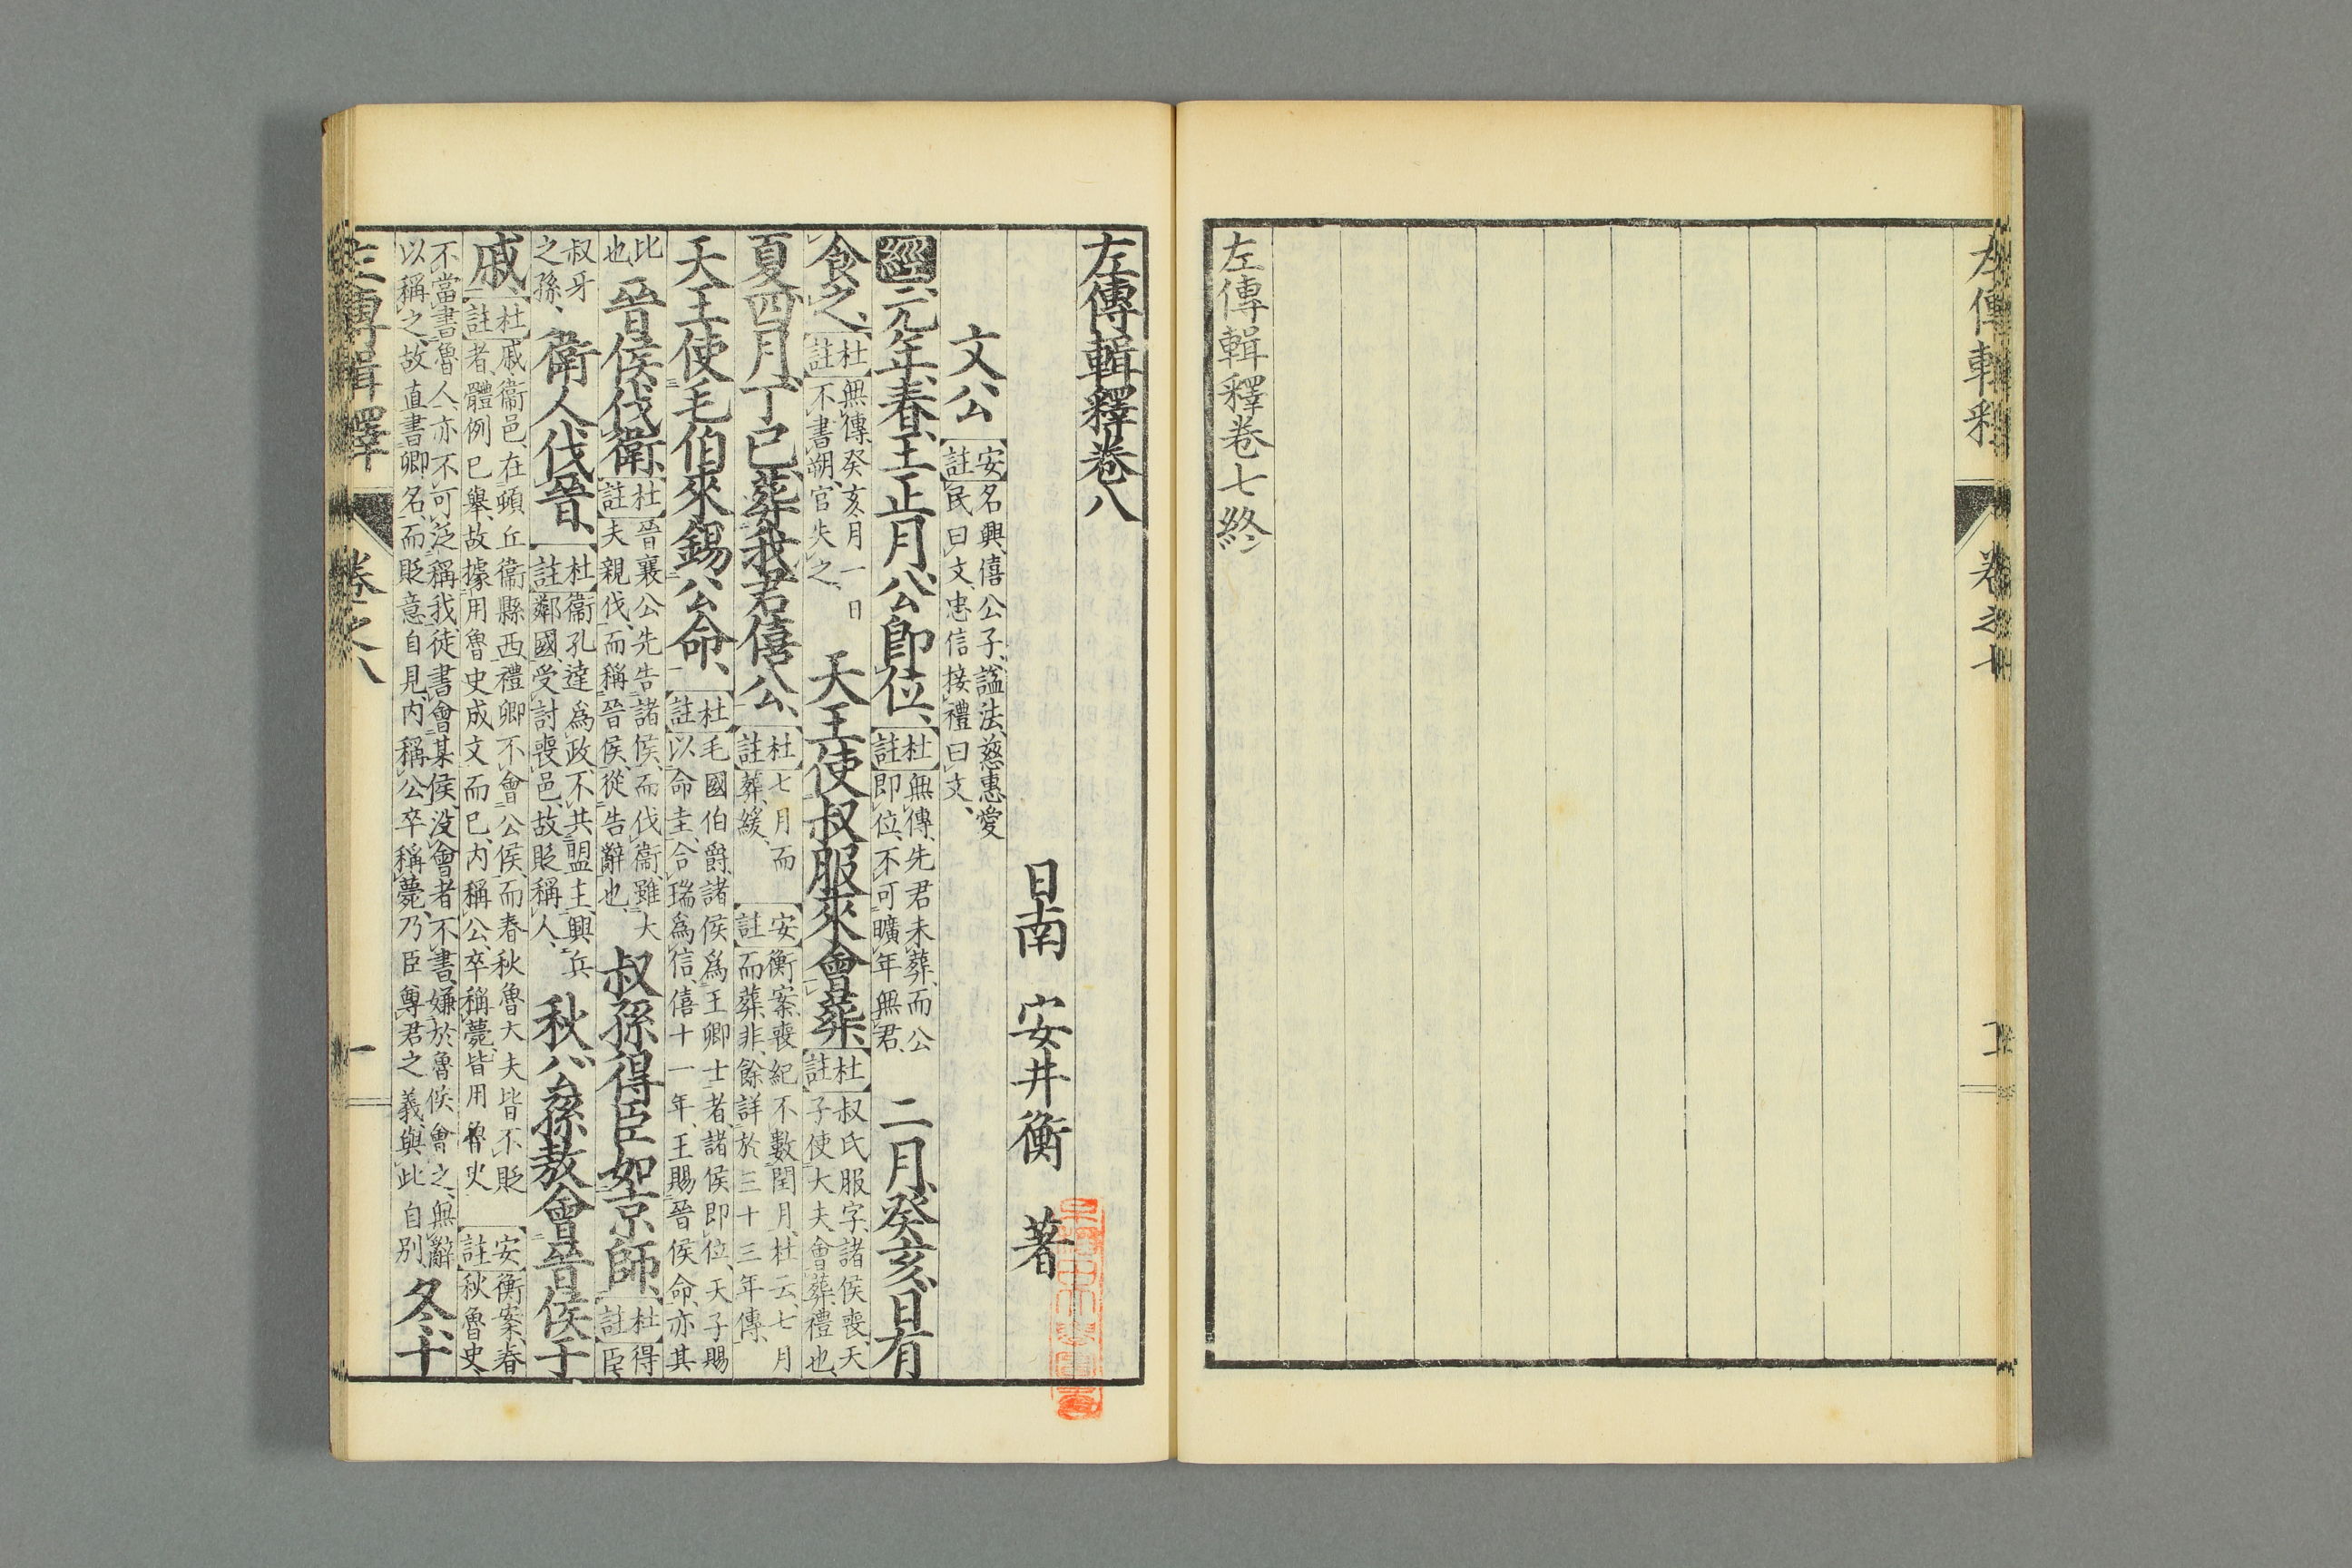 左傳輯釋　卷之七
左傳輯釋卷七終
左傳輯釋卷八
日南　安井衡　著
文公　安註　名興、僖公子、謚法、慈惠愛民曰文、忠信接禮曰文、
經元年、春、王正月、公即位、杜註　無傳、先君未葬、而公即位、不可曠年無君、　二月、癸亥、日有
食之、杜註　無傳、癸亥月一日不書朔、官失之、　天王使叔服來會葬、杜註　叔氏服字、諸侯喪、天子使大夫會葬、禮也、
夏四月、丁巳、葬我君僖公、杜註　七月而葬、緩、　安註　衡案、喪紀不數閏月、杜云、七月而葬、非、餘詳於三十三年傳、
天王使毛伯來錫公命、杜註　毛國伯爵、諸侯爲王卿士者、諸侯即位、天子賜以命圭、合瑞爲信、僖十一年、王賜晉侯命、亦其
比也、晉侯伐衛、杜註　晉襄公先告諸侯、而伐衞、雖大夫親伐、而稱晉侯、從告辭也、　叔孫得臣如京師、杜註　得臣
叔牙之孫、衛人伐晉、杜註　衞孔達爲政、不共盟主、興兵鄰國、受討喪邑、故貶稱人、　秋、公孫敖會晉侯于
戚、杜註　戚、衞邑、在頓丘衞縣西、禮卿不會公侯、而春秋魯大夫皆不貶者、體例已舉、故據用魯史成文而已、内稱公、卒稱薨、皆用魯史　安註　衡案、春秋魯史、
不當書魯人、亦不可泛稱我、徒書會某侯、没會者不書、嫌於魯侯會之、無辭以稱之、故直書卿名、而貶意自見、内稱公卒稱薨、乃臣尊君之義、與此自別　冬、十
左傳輯釋　卷之八　一